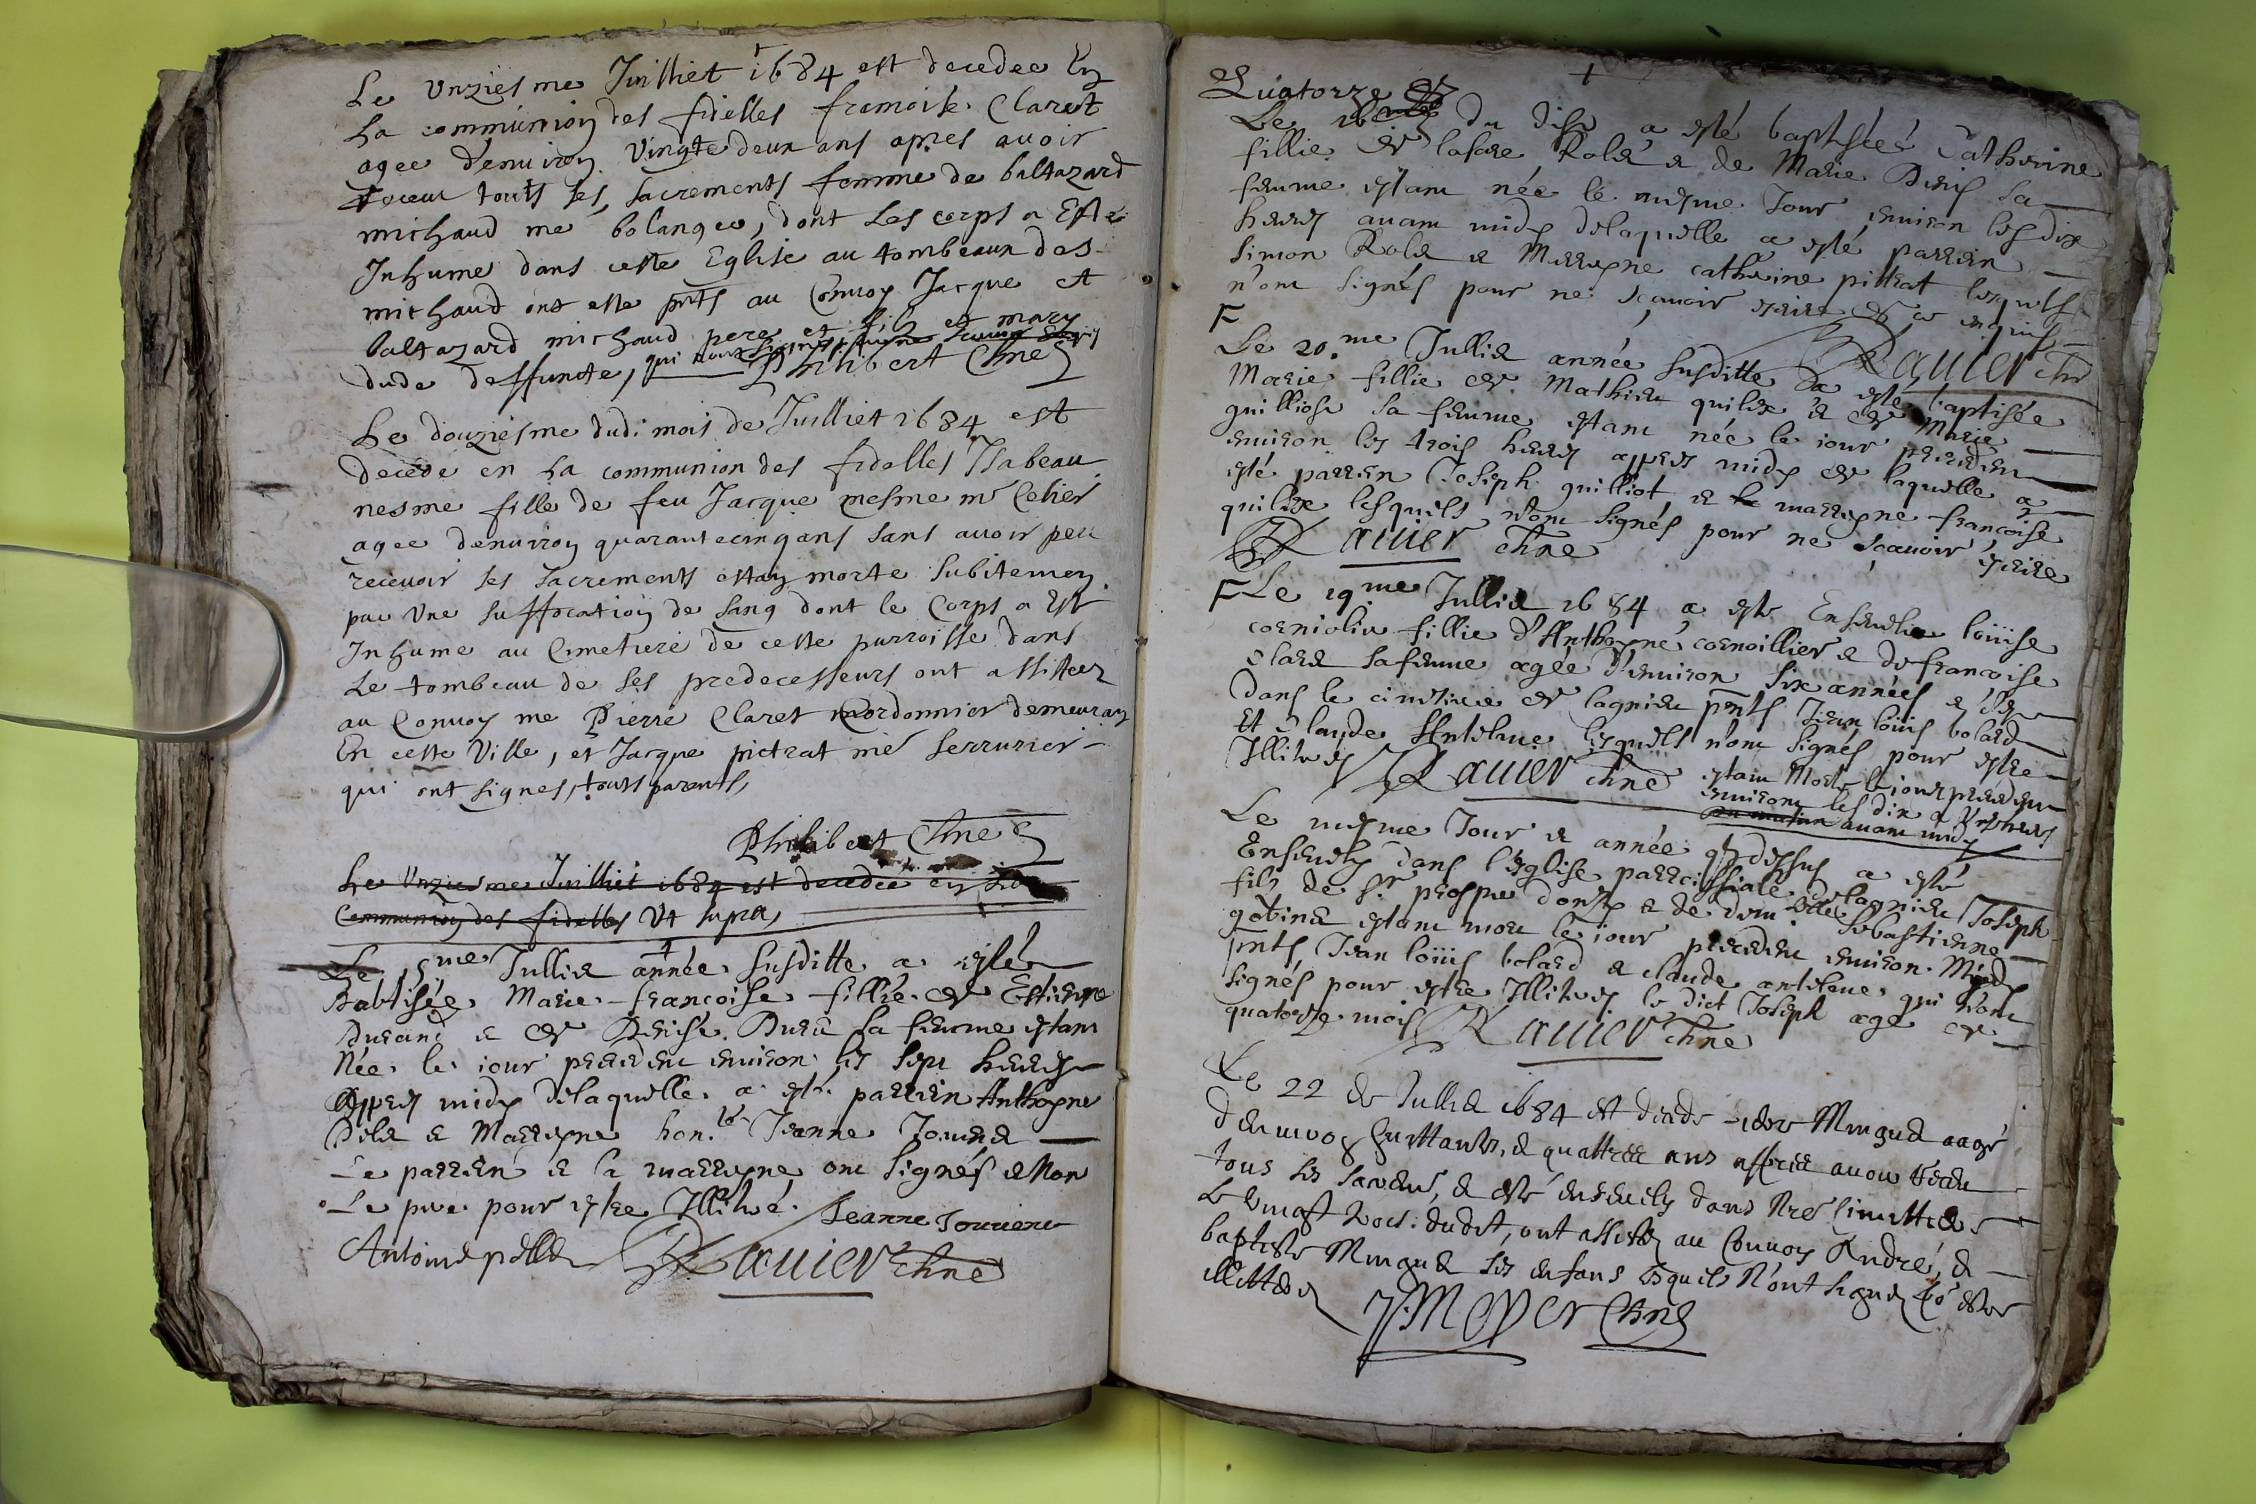 Le Unziesme Juilliet 1684 est decedee En
La communion des fidelles francoise Claret
agee d'environ Vingte deux ans apres avoir
receu touts ses sacrements femme de baltazard
michaud me bolanger, dont Les corps a Esté
Inhume dans cette Eglise au tombeaux des
michaud ont este pnts au Convoy Jacque et
baltazard michaud pere et fils et mary
dude deffuncte, qui Philibert Chne
Le douziesme dudi mois de Juilliet 1684 est
decede en La communion des fidelles Isabeau
nesme fille de feu Jacque mesme me Celier
agee denviron quarante cinq ans sans avoir peu
recevoir ses sacrements estan morte subitemen
par Une suffocation de sang dont le Corps a Est
Inhume au Cimetiere de cette parroisse dans
Le tombeau de ses predecesseurs ont assistez
au Convoy me Pierre Claret Cordonnier demeuran
En cette Ville, et Jacque pietrat me serrurier
qui ont signes, touts parents,
Philibert Chne
Le Unziesme Juilliet 1684 est decedee en La
Communion des fidelles Ut supra,
Le 15me Jullie année susditte a esté
Babtisée Marie francoise fillie de Estienne
Durand e de Denise Duri sa femme estant
Née le iour precedent environ les sept heures
appres midy delaquelle a esté parrien Anthoyne
Pele e Marreyne hon.le Jeanne Jouvene
Le parrien e la marreyne ont signés e Non
Le pere pour estre Illiteré. Jeanne Jouviene
Antoine pelle Ravier Chne
Quatorze
Le 16 du dise a esté baptisée Catherine
fillie de lasare Role e de Marie Denis sa
femme estant née le mesme Jour environ les dix
heures avant midy delaquelle a esté parrien
Simon Role e Merreyne catherine pittrat lesquels
n'ont signés pour ne sçavoir escrire de ce enquis
Ravier Chne
F
Le 20.me Jullie année susditte a esté baptisée
Marie fillie de Mathieu quile e de Marie
guilliose sa femme estant née le iour precedent
environ les trois heures appres midy de laquelle a
esté parrien Joseph guilliot e la marreyne francoise
quile lesquels n'ont signés pour ne sçavoir escrire
Ravier Chne
F Le 19me Jullie 1684 a esté Ensevelie loüise
corniolie fillie d'Anthoyne cornoillier e de francoise
Clare sa femme agée d'environ six années e
dans le cimetiere de lagnieu pnts Jean loüis bolard
Et Claude Antelme lesquels n'ont signés pour estre
Illiteres Ravier Chne estant Morte le iour precedent
environ les dix heures
avant midy
Le mesme Jour e année cy dessus a esté
Ensevely dans l'esglise parroissiale de lagnieu Joseph
fils de Sr prosper donzy e de dem.elle Sebastienne
gobine estant mort le iour precedent environ Midy
pnts, Jean loüis bolard e claude antelme qui n'ont
signés pour estre Illiteres le dict Joseph agé de
quatorze mois Ravier Chne
Le 22 de Jullie 1684 est decede Mingue aagé
d'environ e quattre ans appres avoir receu
tous ses e esté ensevely dans Nre Cimettiere
Le dudt, ont assistez au Convoy André, e
baptiste Mingue ses enfans lesquels N'ont signez estre
illitteres J. Moyer Chne